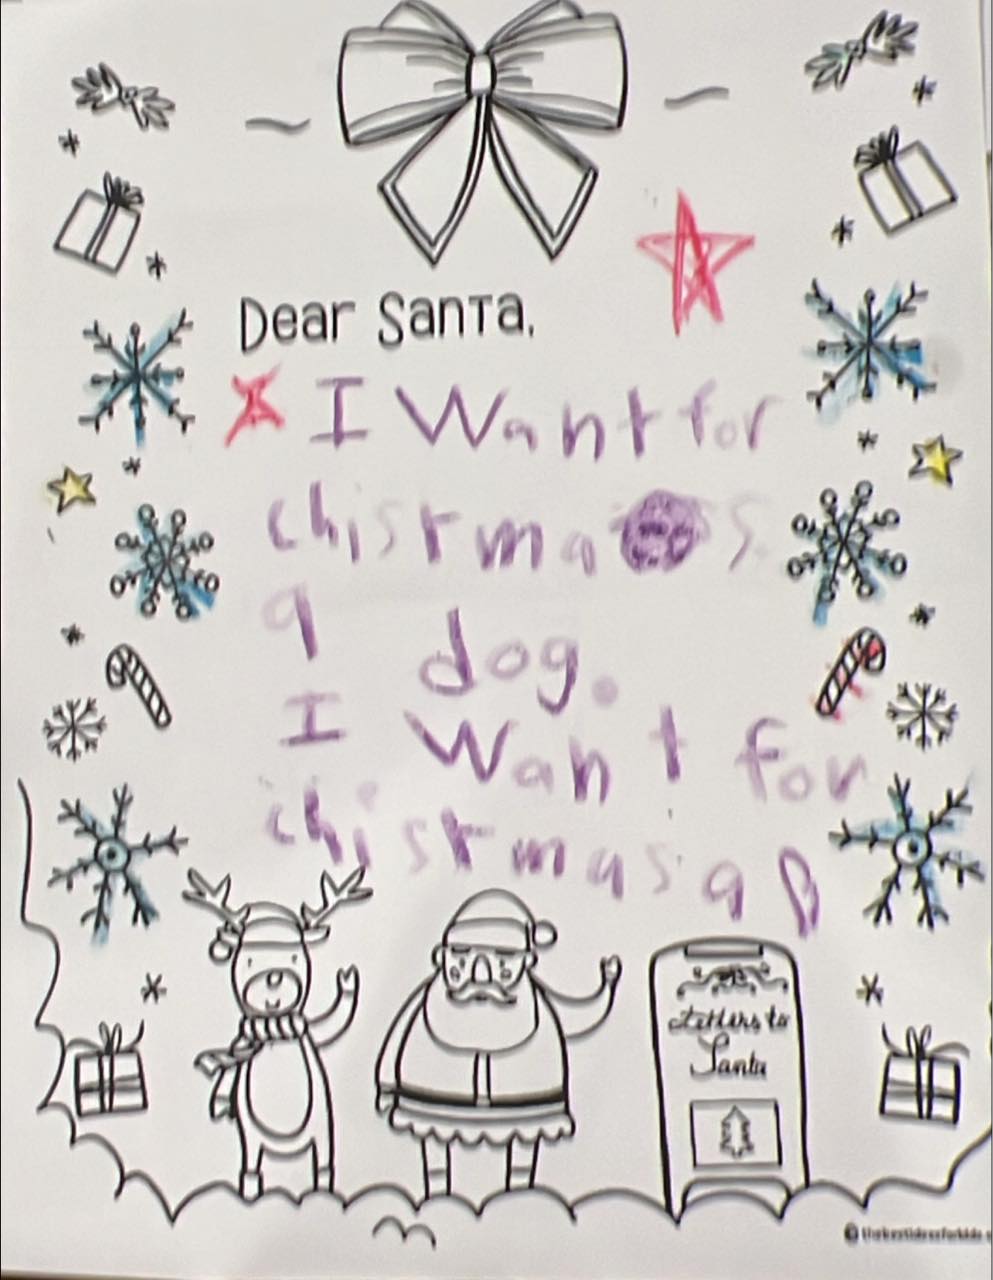 Dear Santa,
I Want for
chistmas
a dog.
I Want for
chistmas a B
Letters to
Santa